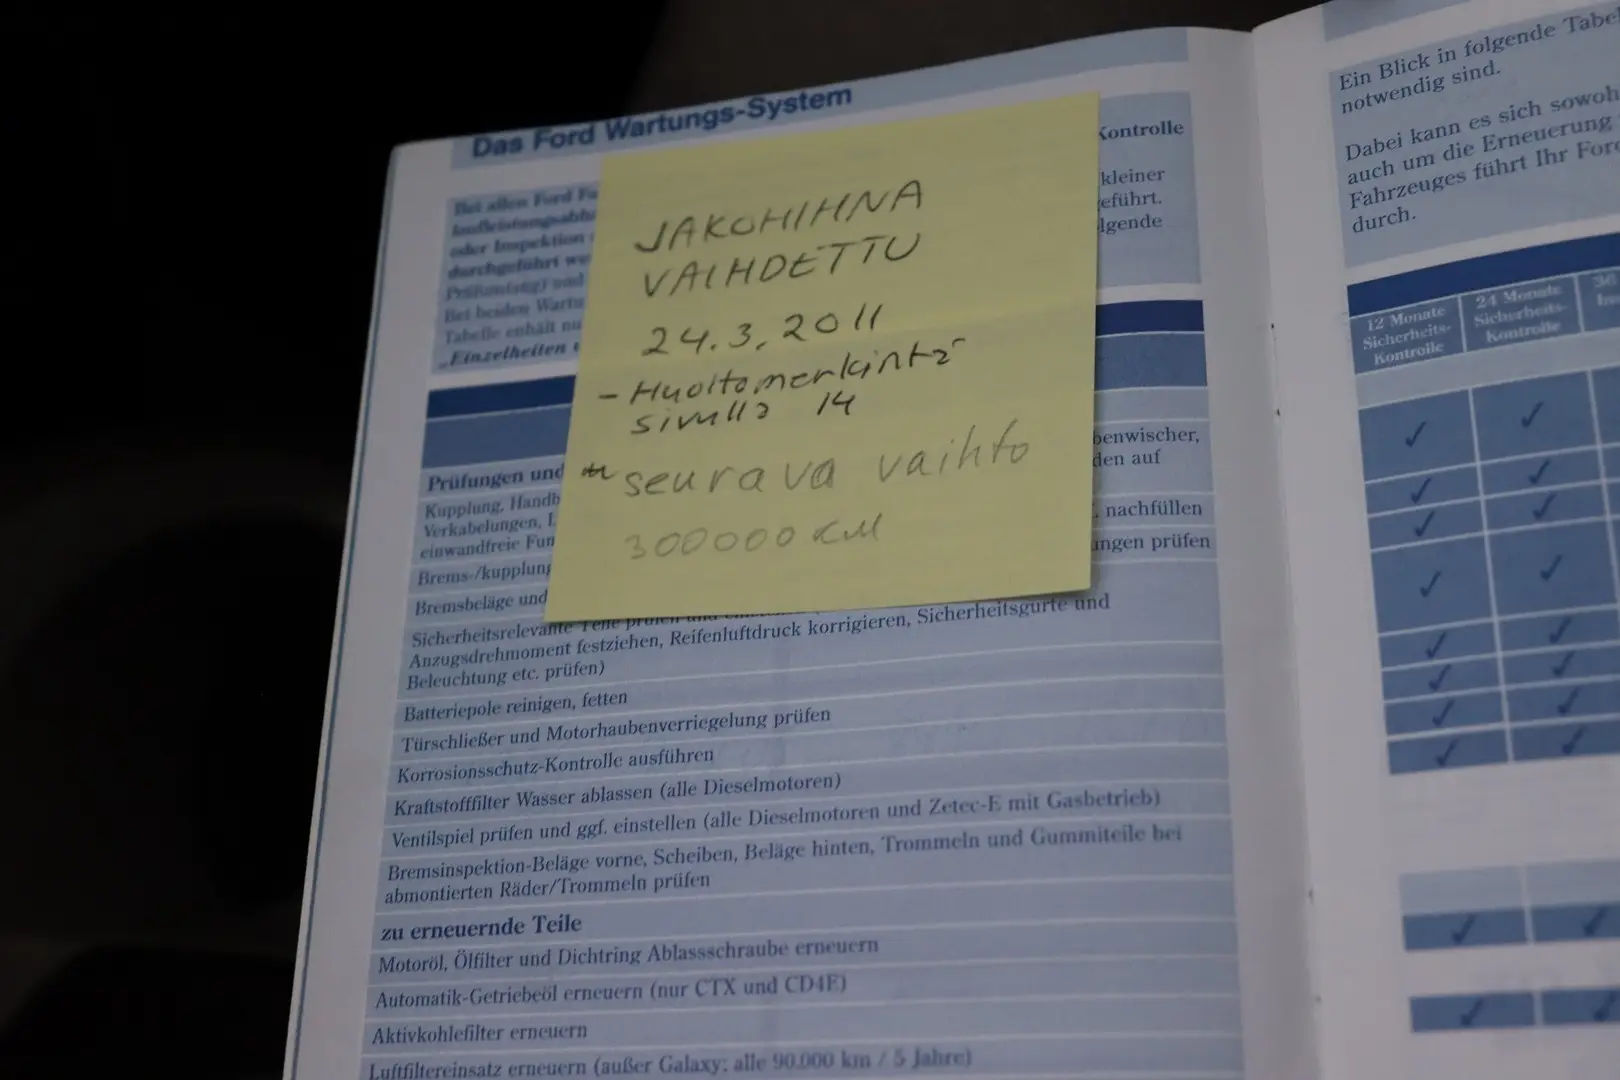 Das Ford Wartungs-System
Bei allen Ford Fa
laufleistungsabh
oder Inspektion
durchgeführt we
Prüfumfang) und
Bei beiden Wartu
Tabelle enhält nu
„Einzelheiten
Kontrolle
kleiner
eführt.
lgende
JAKOHIHNA
VAIHDETTU
24.3.2011
- Huoltomerkintä
sivulla 14
seurava vaihto
300000 KM
Prüfungen und
Kupplung, Handb
Verkabelungen, L
einwandfreie Fun
benwischer,
den auf
Brems-/kupplung
. nachfüllen
Bremsbeläge und
ungen prüfen
Sicherheitsrelevante Teile prüfen und
Anzugsdrehmoment festziehen, Reifenluftdruck korrigieren, Sicherheitsgurte und
Beleuchtung etc. prüfen)
Batteriepole reinigen, fetten
Türschließer und Motorhaubenverriegelung prüfen
Korrosionsschutz-Kontrolle ausführen
Kraftstofffilter Wasser ablassen (alle Dieselmotoren)
Ventilspiel prüfen und ggf. einstellen (alle Dieselmotoren und Zetec-E mit Gasbetrieb)
Bremsinspektion-Beläge vorne, Scheiben, Beläge hinten, Trommeln und Gummiteile bei
abmontierten Räder/Trommeln prüfen
zu erneuernde Teile
Motoröl, Ölfilter und Dichtring Ablassschraube erneuern
Automatik-Getriebeöl erneuern (nur CTX und CD4E)
Aktivkohlefilter erneuern
Luftfiltereinsatz erneuern (außer Galaxy: alle 90.000 km / 5 Jahre)
Ein Blick in folgende Tabe
notwendig sind.
Dabei kann es sich sowoh
auch um die Erneuerung
Fahrzeuges führt Ihr For
durch.
12 Monate
Sicherheits-
Kontrolle
24 Monate
Sicherheits-
Kontrolle